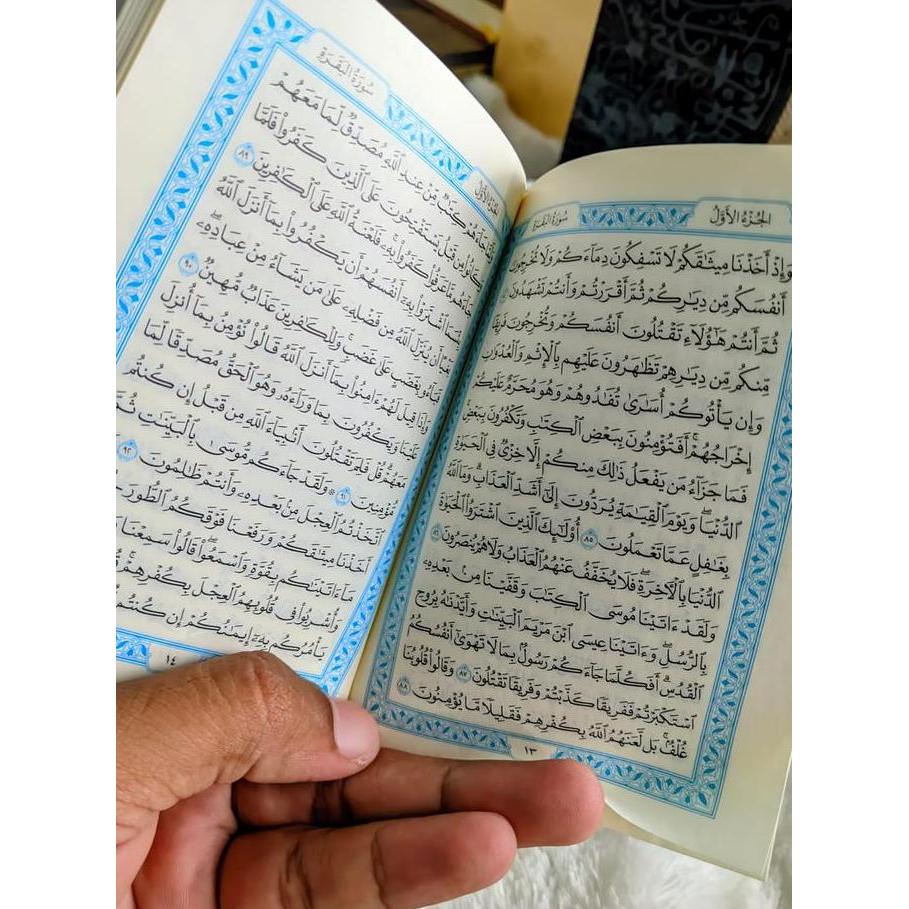 الجُزْءُ الأَوَّلُ
سُورَةُ البَقَرَةِ
وَإِذْ أَخَذْنَا مِيثَٰقَكُمْ لَا تَسْفِكُونَ دِمَآءَكُمْ وَلَا تُخْرِجُونَ
أَنفُسَكُم مِّن دِيَٰرِكُمْ ثُمَّ أَقْرَرْتُمْ وَأَنتُمْ تَشْهَدُونَ
ثُمَّ أَنتُمْ هَٰٓؤُلَآءِ تَقْتُلُونَ أَنفُسَكُمْ وَتُخْرِجُونَ فَرِيقًا
مِّنكُم مِّن دِيَٰرِهِمْ تَظَٰهَرُونَ عَلَيْهِم بِٱلْإِثْمِ وَٱلْعُدْوَٰنِ
وَإِن يَأْتُوكُمْ أُسَٰرَىٰ تُفَٰدُوهُمْ وَهُوَ مُحَرَّمٌ عَلَيْكُمْ
إِخْرَاجُهُمْ ۚ أَفَتُؤْمِنُونَ بِبَعْضِ ٱلْكِتَٰبِ وَتَكْفُرُونَ بِبَعْضٍ ۚ
فَمَا جَزَآءُ مَن يَفْعَلُ ذَٰلِكَ مِنكُمْ إِلَّا خِزْيٌ فِى ٱلْحَيَوٰةِ
ٱلدُّنْيَا ۖ وَيَوْمَ ٱلْقِيَٰمَةِ يُرَدُّونَ إِلَىٰٓ أَشَدِّ ٱلْعَذَابِ ۗ وَمَا ٱللَّهُ
بِغَٰفِلٍ عَمَّا تَعْمَلُونَ ٨٥ أُو۟لَٰٓئِكَ ٱلَّذِينَ ٱشْتَرَوُا۟ ٱلْحَيَوٰةَ
ٱلدُّنْيَا بِٱلْءَاخِرَةِ ۖ فَلَا يُخَفَّفُ عَنْهُمُ ٱلْعَذَابُ وَلَا هُمْ يُنصَرُونَ ٨٦
وَلَقَدْ ءَاتَيْنَا مُوسَى ٱلْكِتَٰبَ وَقَفَّيْنَا مِنۢ بَعْدِهِۦ
بِٱلرُّسُلِ ۖ وَءَاتَيْنَا عِيسَى ٱبْنَ مَرْيَمَ ٱلْبَيِّنَٰتِ وَأَيَّدْنَٰهُ بِرُوحِ
ٱلْقُدُسِ ۗ أَفَكُلَّمَا جَآءَكُمْ رَسُولٌۢ بِمَا لَا تَهْوَىٰٓ أَنفُسُكُمُ
ٱسْتَكْبَرْتُمْ فَفَرِيقًا كَذَّبْتُمْ وَفَرِيقًا تَقْتُلُونَ ٨٧ وَقَالُوا۟ قُلُوبُنَا
غُلْفٌۢ ۚ بَل لَّعَنَهُمُ ٱللَّهُ بِكُفْرِهِمْ فَقَلِيلًا مَّا يُؤْمِنُونَ ٨٨
١٣
الجُزْءُ الأَوَّلُ
سُورَةُ البَقَرَةِ
جَآءَهُمْ كِتَٰبٌ مِّنْ عِندِ ٱللَّهِ مُصَدِّقٌ لِّمَا مَعَهُمْ
كَانُوا۟ مِن قَبْلُ يَسْتَفْتِحُونَ عَلَى ٱلَّذِينَ كَفَرُوا۟ فَلَمَّا
جَآءَهُم مَّا عَرَفُوا۟ كَفَرُوا۟ بِهِۦ ۚ فَلَعْنَةُ ٱللَّهِ عَلَى ٱلْكَٰفِرِينَ ٨٩
ٱشْتَرَوْا۟ بِهِۦٓ أَنفُسَهُمْ أَن يَكْفُرُوا۟ بِمَآ أَنزَلَ ٱللَّهُ
أَن يُنَزِّلَ ٱللَّهُ مِن فَضْلِهِۦ عَلَىٰ مَن يَشَآءُ مِنْ عِبَادِهِۦ ۖ
فَبَآءُو بِغَضَبٍ عَلَىٰ غَضَبٍ ۚ وَلِلْكَٰفِرِينَ عَذَابٌ مُّهِينٌ ٩٠
وَإِذَا قِيلَ لَهُمْ ءَامِنُوا۟ بِمَآ أَنزَلَ ٱللَّهُ قَالُوا۟ نُؤْمِنُ بِمَآ أُنزِلَ
عَلَيْنَا وَيَكْفُرُونَ بِمَا وَرَآءَهُۥ وَهُوَ ٱلْحَقُّ مُصَدِّقًا لِّمَا
مَعَهُمْ ۗ قُلْ فَلِمَ تَقْتُلُونَ أَنۢبِيَآءَ ٱللَّهِ مِن قَبْلُ إِن كُنتُم
مُّؤْمِنِينَ ٩١ ۞ وَلَقَدْ جَآءَكُم مُّوسَىٰ بِٱلْبَيِّنَٰتِ ثُمَّ
ٱتَّخَذْتُمُ ٱلْعِجْلَ مِنۢ بَعْدِهِۦ وَأَنتُمْ ظَٰلِمُونَ ٩٢
أَخَذْنَا مِيثَٰقَكُمْ وَرَفَعْنَا فَوْقَكُمُ ٱلطُّورَ
مَآ ءَاتَيْنَٰكُم بِقُوَّةٍ وَٱسْمَعُوا۟ ۖ قَالُوا۟ سَمِعْنَا
وَأُشْرِبُوا۟ فِى قُلُوبِهِمُ ٱلْعِجْلَ بِكُفْرِهِمْ ۚ
يَأْمُرُكُم بِهِۦٓ إِيمَٰنُكُمْ إِن كُنتُم
١٤